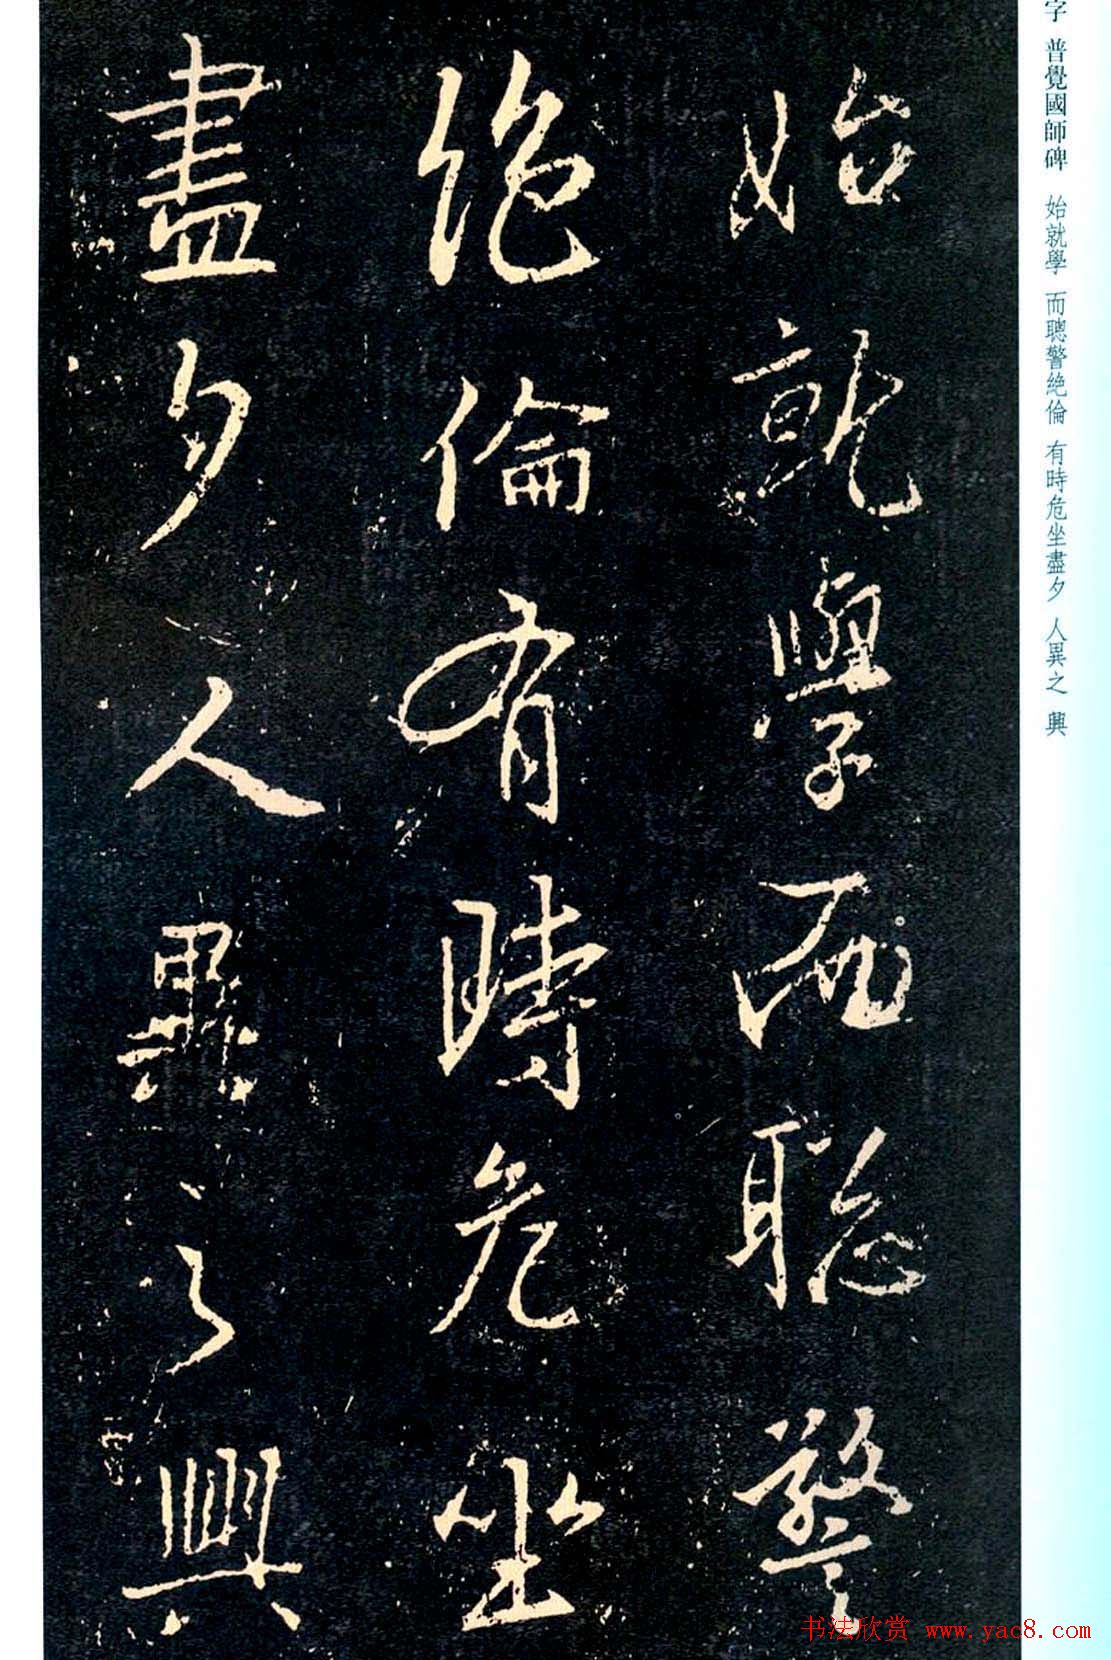 始就學而聰警
絶倫有時危坐
盡夕人異之興
字 普覺國師碑 始就學 而聰警絶倫 有時危坐盡夕 人異之 興
书法欣赏 www.yac8.com